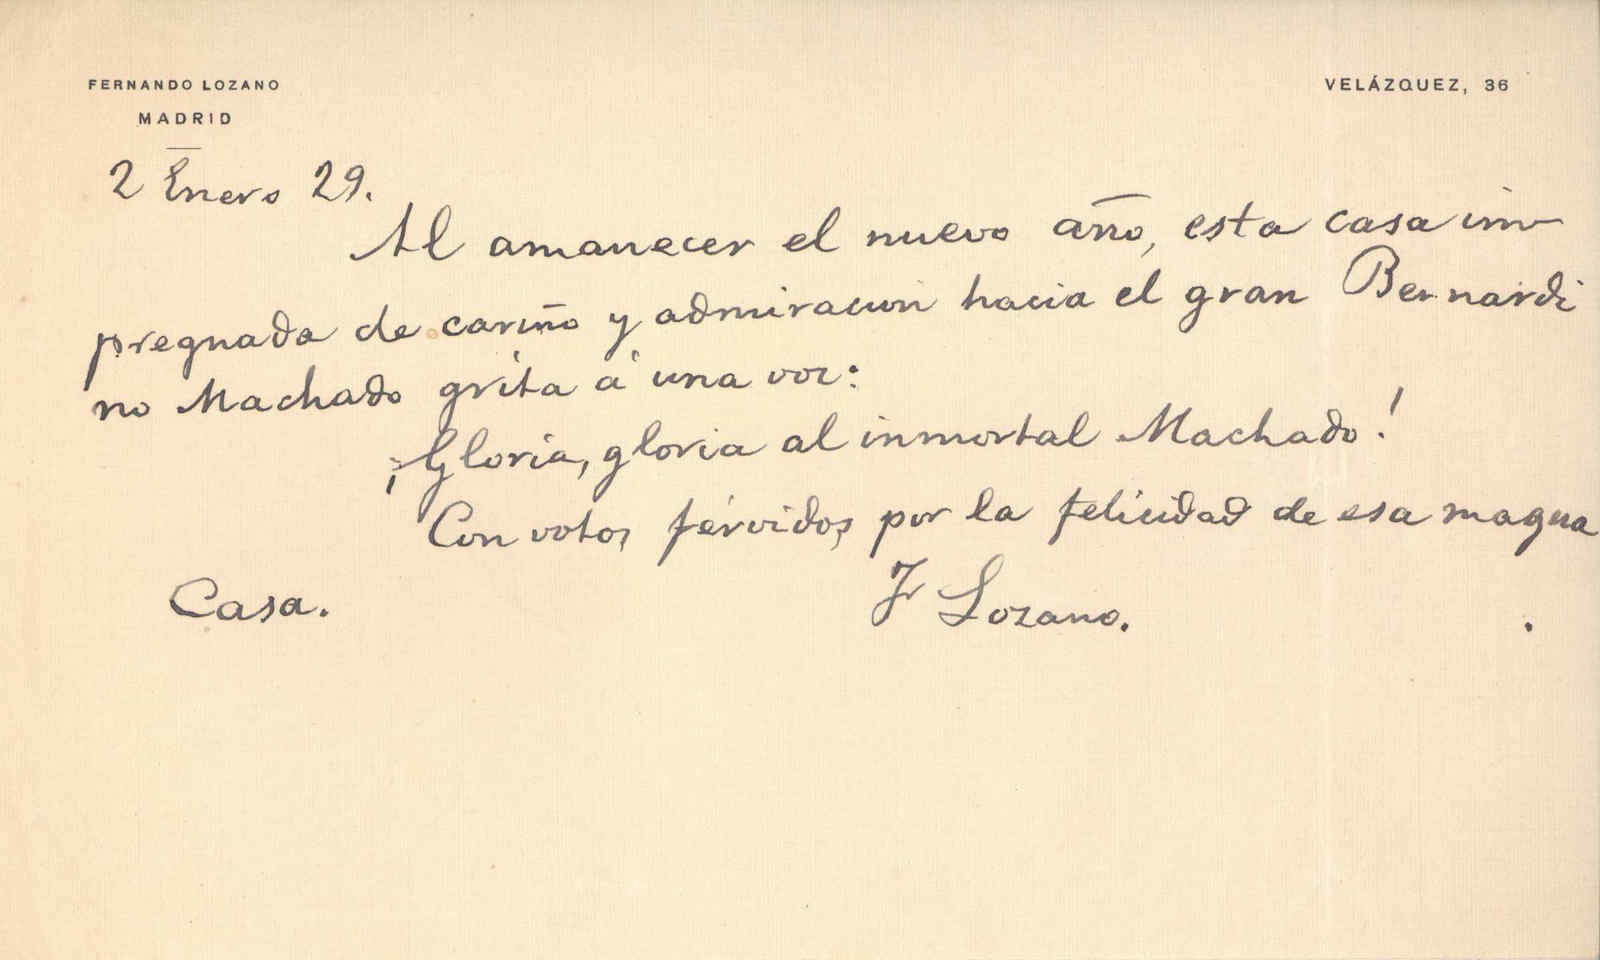 FERNANDO LOZANO
VELÁZQUEZ, 36
MADRID
2 Enero 29.
Al amanecer el nuevo año, esta casa im
pregnada de cariño y admiracion hacia el gran Bernardi
no Machado grita á una voz:
¡Gloria, gloria al inmortal Machado!
Con votos férvidos por la felicidad de esa magna
Casa.
F Lozano.